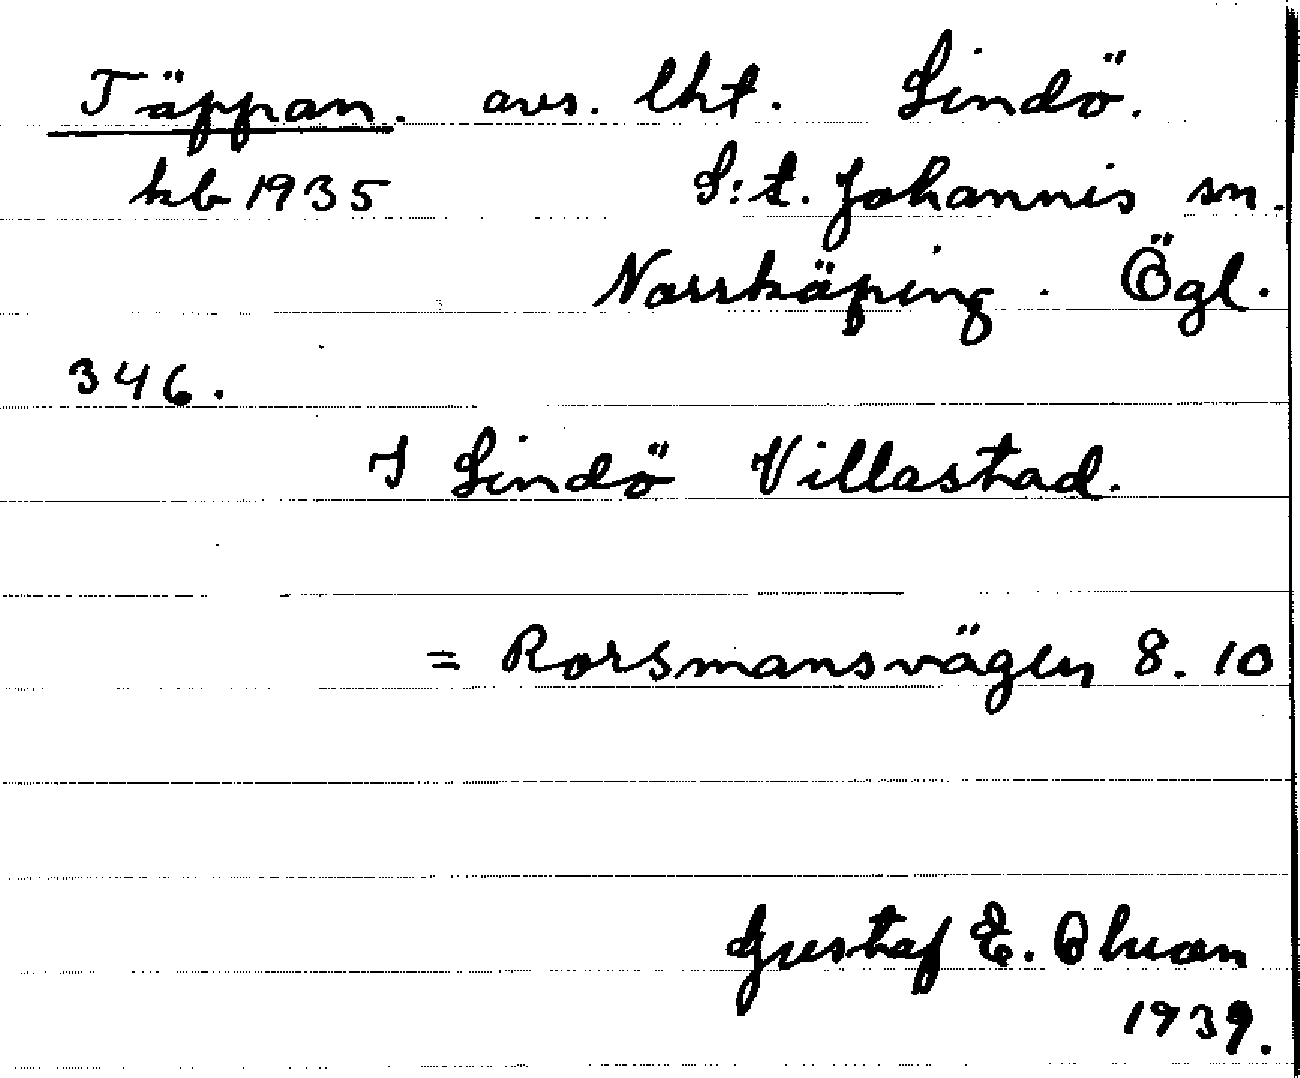 Täppan. avs. lht. Lindö.
kb 1935 S:t. Johannis sn.
Norrköping. Ögl.
346.
I Lindö Villastad.
= Rorsmansvägen 8. 10
Gustaf E. Olsson
1939.